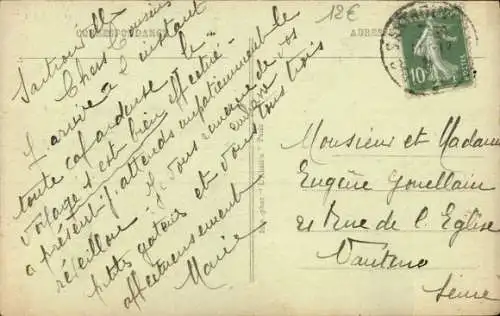 CORRESPONDANCE
12€
ADRES
Sartrouville
Chers Cousins
J'arrive à l'instant
toute cafardeuse le
voyage s'est bien effectué
à présent j'attends impatiemment le
réveillon. Je vous remercie de vos
petits gateaux et vous
embrasse tous trois
affectueusement
Marie
10
Monsieur et Madame
Eugène Gouellain
21 Rue de l'Eglise
Nanterre
Seine